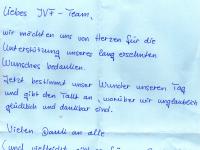 Liebes IVF-Team,
wir möchten uns von Herzen für die
Unterstützung unseres lang ersehnten
Wunsches bedanken.
Jetzt bestimmt unser Wunder unseren Tag
und gibt den Takt an, worüber wir unglaublich
glücklich und dankbar sind.
Vielen Dank an alle
(und vielleicht